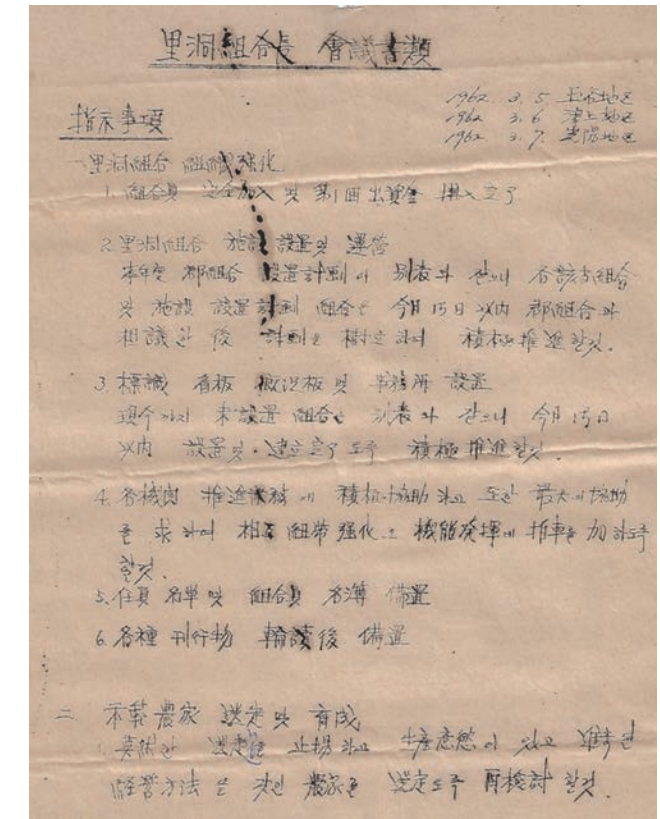 里洞組合長 會議書類
1962. 3. 5. 玉谷地区
1962 3. 6 津上地区
1962 3. 7. 光陽地区
指示事項
一. 里洞組合 組織 强化
1. 組合員 完全加入 및 第1回 出資金 拂入 完了
2. 里洞組合 施設 設置 및 運營
本年度 郡組合 設置計劃이 別表와 같으니 各該当組合
및 施設 設置計劃 組合은 今月 15日 以內 郡組合과
相議한 後 計劃을 樹立하여 積極推進할것.
3. 標識 看板 概況板 및 事務所 設置
現今까지 未設置 組合은 別表와 같으니 今月 15日
以內 設置 및 建立 完了토록 積極推進할것.
4. 各機関 推進業務에 積極 協助하고 또한 最大의 協助
를 求하여 相互 紐帶强化로 機能發揮에 拍車를 加하도록
할것.
5. 任員 名單 및 組合員 名簿 備置
6. 各種 刊行物 輪讀後 備置
二 示範農家 選定 및 育成
1. 莫然한 選定을 止揚하고 生産意慾이 있고
経營方法을 갖인 農家를 選定토록 再檢討할것.